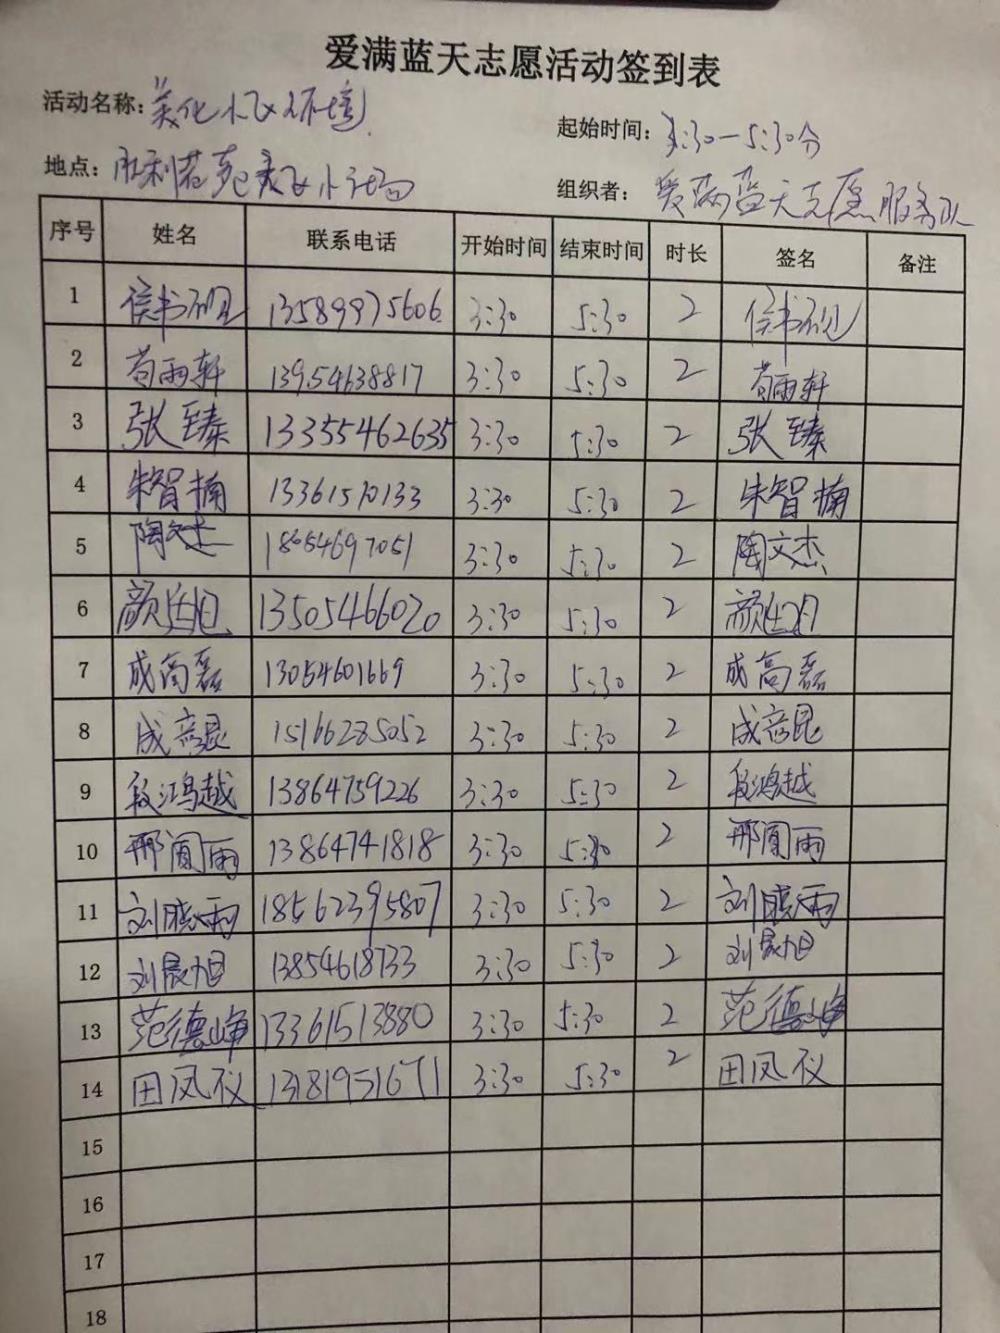 爱满蓝天志愿活动签到表
活动名称：美化小区环境
起始时间：3:30—5:30分
地点：胜利花苑东区小广场
组织者：爱满蓝天志愿服务队
序号 姓名 联系电话 开始时间 结束时间 时长 签名 备注
1 侯书砚 13589975606 3:30 5:30 2 侯书砚
2 苟雨轩 13954638817 3:30 5:30 2 苟雨轩
3 张臻 13355462635 3:30 5:30 2 张臻
4 朱智楠 13361570133 3:30 5:30 2 朱智楠
5 陶文杰 18054697051 3:30 5:30 2 陶文杰
6 13505466020 3:30 5:30 2
7 成高磊 13054601669 3:30 5:30 2 成高磊
8 成高昆 15166285052 3:30 5:30 2 成高昆
9 段鸿越 13864759226 3:30 5:30 2 段鸿越
10 邢圆雨 13864741818 3:30 5:30 2 邢圆雨
11 刘晓雨 18562395807 3:30 5:30 2 刘晓雨
12 刘晨旭 13854618733 3:30 5:30 2 刘晨旭
13 范德峥 13361513880 3:30 5:30 2 范德峥
14 田凤仪 13181951671 3:30 5:30 2 田凤仪
15
16
17
18